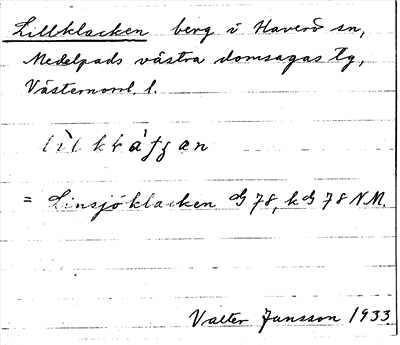 Lillklacken berg i Haverö sn,
Medelpads västra domsagas tg,
Västernorrl. l.
= Linsjöklacken G 78, k G 78 N M.
Valter Jansson 1933